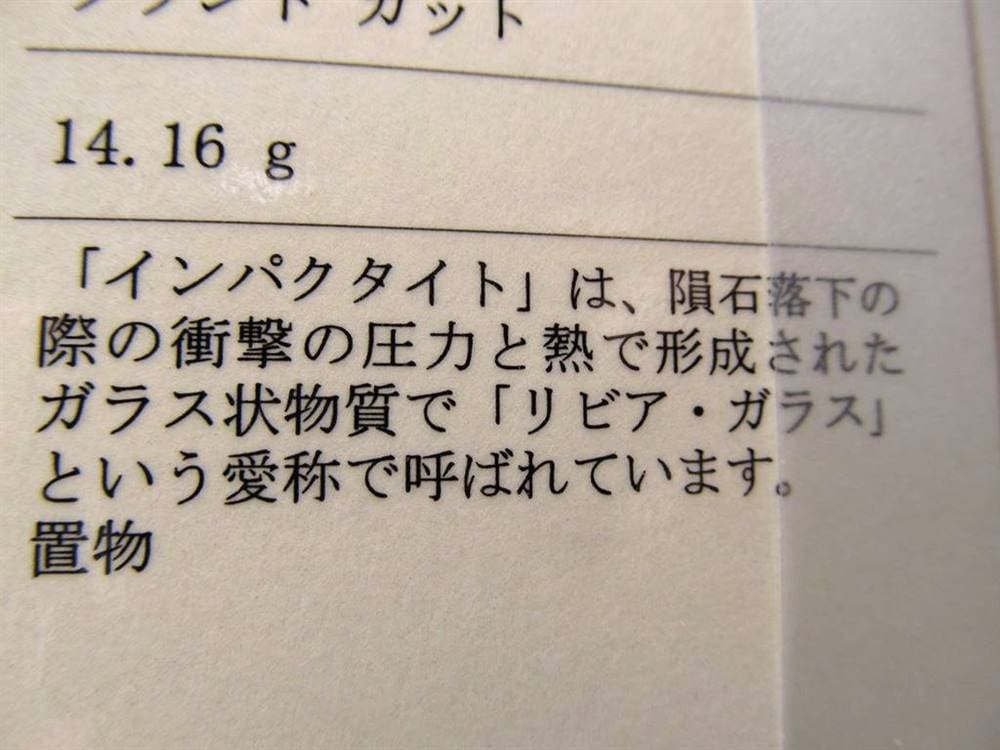 カット
14.16 g
「インパクタイト」は、隕石落下の
際の衝撃の圧力と熱で形成された
ガラス状物質で「リビア・ガラス」
という愛称で呼ばれています。
置物